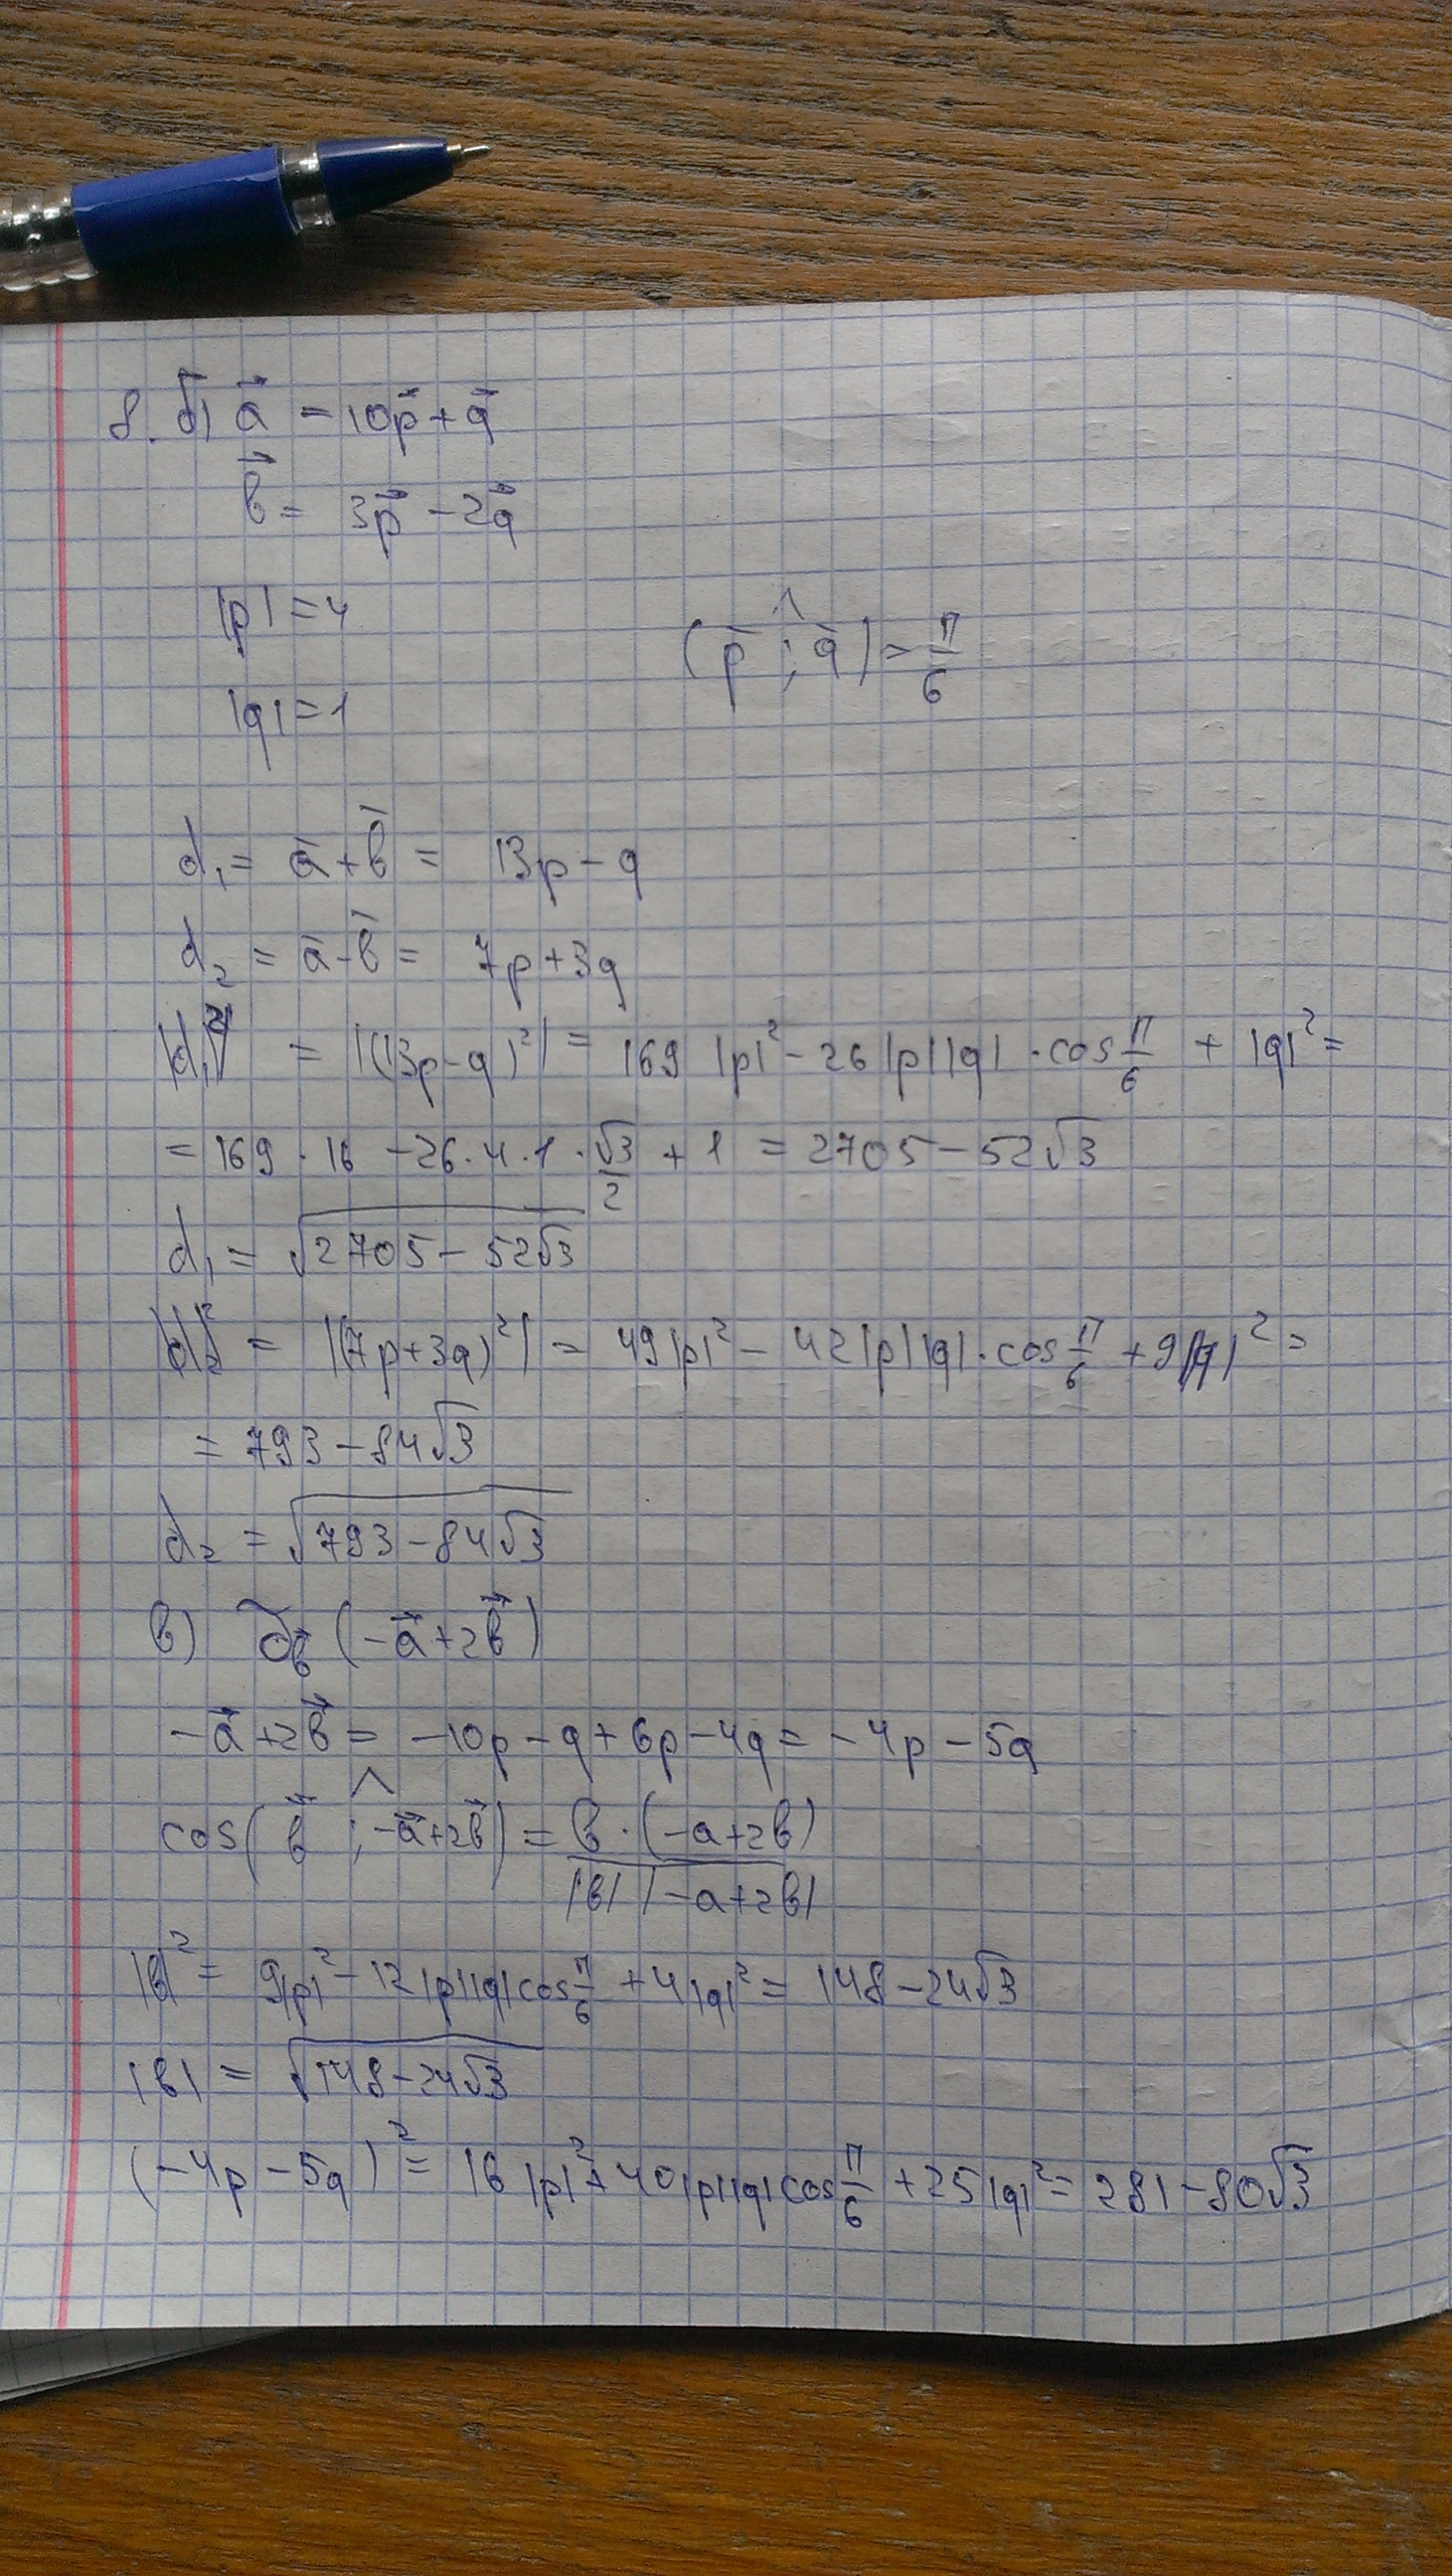 8. б) a⃗ = 10p⃗ + q⃗
b⃗ = 3p⃗ - 2q⃗
|p| = 4
(p̄ ; q̄)^ = π/6
|q| = 1
d₁ = ā + b̄ = 13p - q
d₂ = ā - b̄ = 7p + 3q
|d₁|² = |(13p - q)²| = 169 |p|² - 26 |p||q| · cos π/6 + |q|² =
= 169 · 16 - 26 · 4 · 1 · √3/2 + 1 = 2705 - 52√3
d₁ = √(2705 - 52√3)
|d₂|² = |(7p + 3q)²| = 49|p|² - 42|p||q| · cos π/6 + 9|q|² =
= 793 - 84√3
d₂ = √(793 - 84√3)
в) (-a⃗ + 2b⃗)
-a⃗ + 2b⃗ = -10p - q + 6p - 4q = -4p - 5q
cos(b⃗ ^; -a⃗ + 2b⃗) = b · (-a + 2b) / |b| |-a + 2b|
|b|² = 9|p|² - 12|p||q| cos π/6 + 4|q|² = 148 - 24√3
|b| = √(148 - 24√3)
(-4p - 5q)² = 16 |p|² + 40|p||q| cos π/6 + 25|q|² = 281 - 80√3